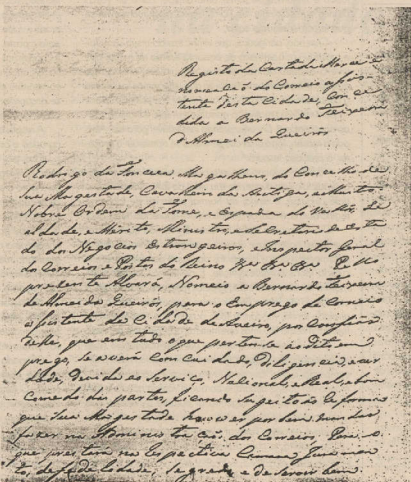 Registo da Carta de Merce e
nomeacaõ do Correio assis-
tente desta Cidade, con ce
dida a Bernardo Teixeira
d'Almeida Queiros
Rodrigo da Fonceca Magalhens, do Concelho de
Sua Magestade, Cavalheiro da Antiga, e Muito
Nobre Ordem da Torre, e Espada do Vallor Le
aldade, e Merito, Ministro, e Secretario de Esta
do dos Negocios Estrangeiros, e Inspector Geral
do Correios e Postas do Reino &a &a &a Pello
prezente Alvará, Nomeio a Bernardo Teixeira
de Almeida Queiros, para o Emprego de Correio
assistente da Cidade de Aveiro, por confiar
delle, que em tudo o que pertencer ao dito em
prego, se averá com cuidado, diligencia, e ver
dade, devida ao Serviço, Nacional, e Real, e bom
comodo das partes, ficando sugeito ás Reformas
que Sua Magestade houver por bem mandar
fazer na Administra caõ dos Correios, Pelo
que prestará na respectiva Camara Juramen
to, de fedelidade, Segredo e de Servir bem